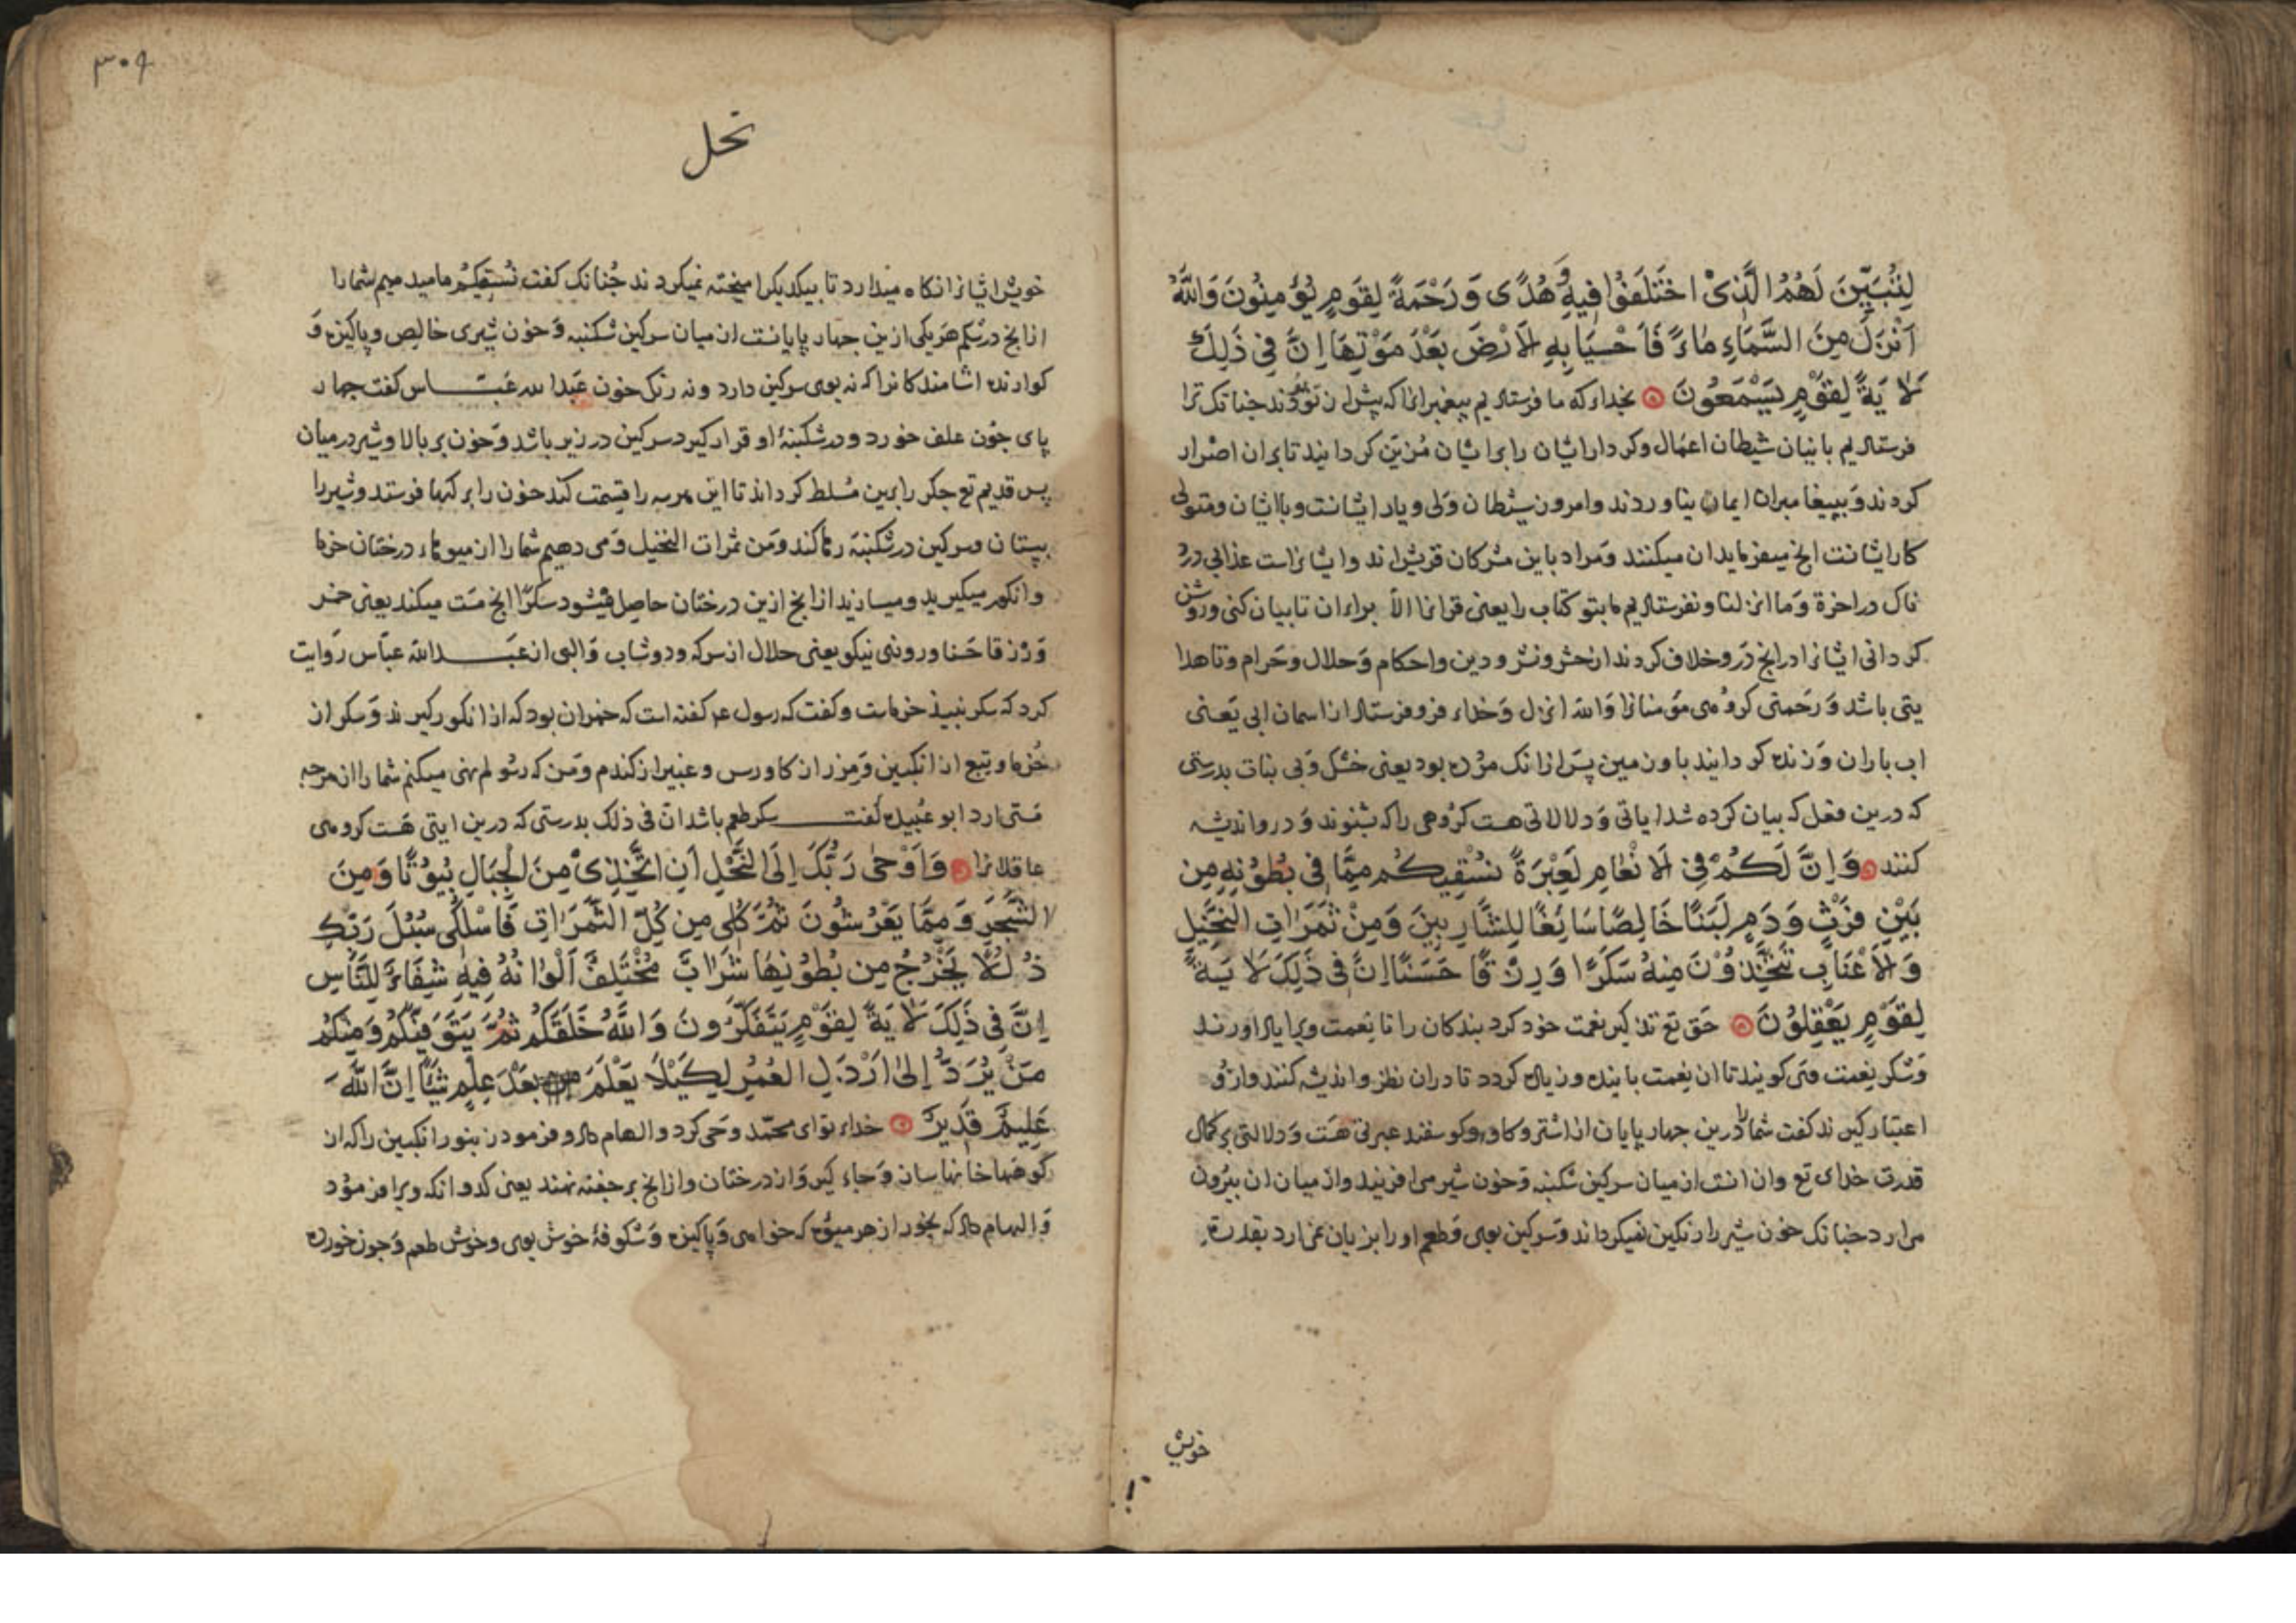 لِتُبَيِّنَ لَهُمُ الَّذِىْ اخْتَلَفُوْا فِيهِ وَهُدًى وَرَحْمَةً لِقَومٍ يُؤْمِنُونَ وَاللَّهُ
اَنْزَلَ مِنَ السَّمَاءِ مَاءً فَاَحْيَا بِهِ لاَرْضَ بَعْدَ مَوْتِهَا اِنَّ فِى ذَلِكَ
لَاٰيَةً لِقَوْمٍ يَسْمَعُونَ بخداء كه ما فرستاديم پيغبرانرا كه پيش از تو بودند جنانك ترا
فرستاديم بانيان شيطان اعمال وكردار ايشان را برايشان مُزيّن كردانيد تا بران اصرار
كردند وَبپيغامبران ايمان نياوردند وامرون شيطان وَلى ويار ايشانست وبا ايشان ومتولى
كار ايشانست انج ميفرمايد ان ميكنند وَمراد باين مشركان قريش اند وايشانراست عذابى درد
ناك در اخرة وَما انزلنا ونفرستاديم ما بتو كتاب را يعنى قرانرا الاّ براء ان تا بيان كنى وروشن
كردانى ايشانرا در انج دَرو خلاف كردند از حشر ونشر ودين واحكام وَحلال وحَرام وتا هدا
يتى باشد وَرَحمتى كروُهى مؤمنانرا وَالله انزل وَخداء فرو فرستاد از اسمان ابى يَعنى
اب باران وَزنده كردانيد باو زمين پسَ ازانك مرُده بود يعنى خشك وَبى نبات بدرستى
كه درين فعل كه بيان كرده شد اياتى وَدلالاتى هست كرُوهى را كه بشنوند وَدرو انديشه
كنند وَاِنَّ لَكُمْ فِى لاَنْعَامِ لَعِبْرَةً نُسْقِيكُم مِمَّا فِى بُطُوْنِهِ مِن
بَيْنِ فَرْثٍ وَدَمٍ لَبَنًا خَالِصًا سَائِغًا لِلشَّارِبِينَ وَمِنْ ثَمَرَاتِ النَّخِيْلِ
وَلاَعْنَابِ تَتَّخِذُوْنَ مِنهُ سَكَرًا وَرِزْقًا حَسَنًا اِنَّ فِى ذَلِكَ لَاٰيَةً
لِقَوْمٍ يَعْقِلُوْنَ حَق تع تذكير نعمت خود كرد بندكان را تا نعمت ويرا ياد اورند
وَشكر نعمت مى كويند تا ان نعمت پاينده وزياده كردد تا دران نظر وانديشه كنند وازوُ
اعتبار كيرند كفت شما را درين جهار پايان از اشتر وكاو وكوسفند عبرتى هست وَدلالتى بر كمال
قدرت خداى تع وان انست از ميان سركين شكنبه وَخون شير مى افرنيد واز ميان ان بيرُون
مى ارد جنانك خون شير را رنكين نميكرداند وَسركين بوى وَطعم او را بزيان نمى ارد بقدرة
خويش
٣٠٩
نحل
خويش ايشانرا نكاه ميدارد تا بيكديكر اميخته نميكردند جُنانك كفت نُسقِيكُم ما ميدهيم شما را
از انج در شكم هَريكى ازين جهار پايانست از ميان سركين شكنبه وَخون شيرى خالص وپاكيزه وَ
كوارنده اشامندكانرا كه نه بوى سركين دارد ونه رنك خون عَبدالله عبّاس كفت جهار
پاى جوُن علف خورد ودر شكنبهٔ او قرار كيرد سركين در زير باشد وَخون بر بالا وشير در ميان
پس قديم تع جكر را برين مُسلط كرداند تا اين هر سه را قسمت كند خون را بركها فرستد وشير را
بپستان وسركين در شكنبه رها كند وَمن ثمرات النخيل وَمى دهيم شما را از ميوهاء درختان خرما
وانكور ميكيريد وميسازيد از انج ازين درختان حاصل ميشود سكرًا انج مَست ميكند يعنى خمر
وَرزقا حَسنا وروزىى نيكو يعنى حلال از سركه ودوشاب وَالبى از عَبدالله عبّاس رَوايت
كرد كه سكر نبيذ خرماست وكفت كه رسول عم كفته است كه خمر ان بود كه از انكور كيرند وَسكر از
خُرما وبتع از انكبين وَمزر از كاورس وعبير از كندم وَمن كه رسُولم نهى ميكنم شما را از هرجه
مَستى ارد ابو عُبيده كفت سكر طعم باشد انّ فى ذلك بدرستى كه درين ايتى هَست كروهى
عاقلانرا وَاَوْحٰى رَبُّكَ اِلَى النَّحْلِ اَنِ اتَّخِذِىْ مِنَ الْجِبَالِ بُيُوْتًا وَمِنَ
الشَّجَرِ وَمِمَّا يَعْرِشُونَ ثُمَّ كُلِى مِن كُلِّ الثَّمَرَاتِ فَاسْلُكِى سُبُلَ رَبِّكِ
ذُلُلًا يَخْرُجُ مِن بُطُوْنِهَا شَرَابٌ مُخْتَلِفٌ اَلْوَانُهُ فِيهِ شِفَاءٌ لِلنَّاسِ
اِنَّ فِى ذَلِكَ لَاٰيَةً لِقَوْمٍ يَتَفَكَّرُونَ وَاللَّهُ خَلَقَكُمْ ثُمَّ يَتَوَفَّيٰكُمْ وَمِنْكُمْ
مَنْ يُرَدُّ اِلىٰ اَرْذَلِ العُمُرِ لِكَيْلَا يَعْلَمَ بَعْدَ عِلْمٍ شَيْئًا اِنَّ اللَّهَ
عَلِيمٌ قَدِيرٌ خداء تو اى محمّد وحَى كرد والهام داد وفرمود زنبور انكبين را كه از
كوهها خانها ساز وَجاء كير وَاز درختان واز انج برجفته نهند يعنى كدو انكه ويرا فرموُد
وَالهام داد كه بخور از هر ميوُه كه خواهى وَپاكيزه وَشكوفهٔ خوش بوى وخوش طعم وَجون خورده